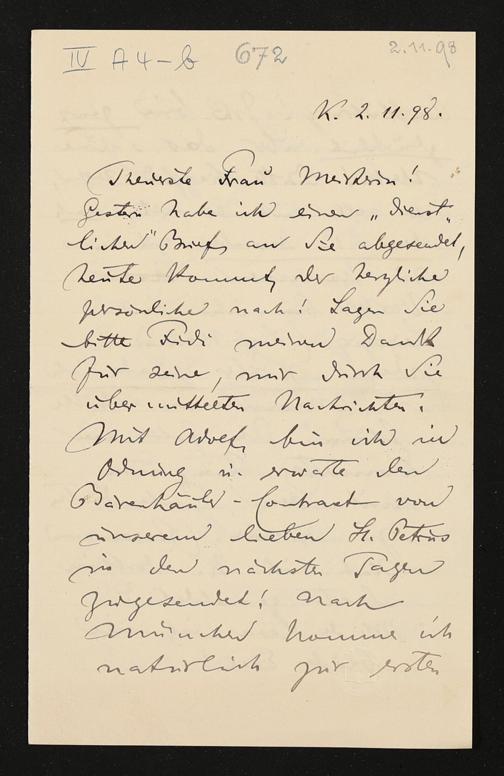 IV A4-b 672 2.11.98
K. 2.11.98.
Theuerste Frau Meisterin!
Gestern habe ich einen „dienst-
lichen" Brief an Sie abgesendet,
heute kommt der herzliche
persönliche nach! Sagen Sie
bitte Fidi meinen Dank
für seine, mir durch Sie
übermittelten Nachrichten.
Mit Adolf bin ich in
Ordnung u. erwarte den
Bärenhäuter-Contract von
unserem lieben St. Petrus
in den nächsten Tagen
zugesendet! Nach
München komme ich
natürlich zur ersten